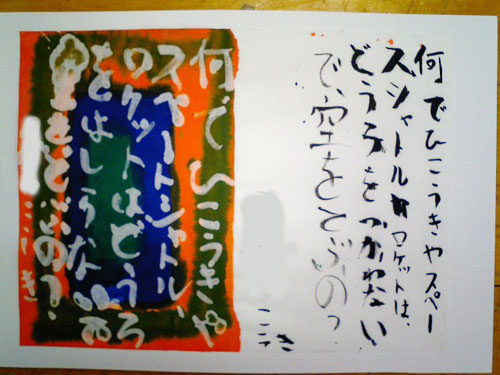 何でひこうきやスペー
スシャトルやロケットは、
どうろをつかわない
で、空をとぶのっ
何でひこうきや
スペースシャトル、
ロケットはどうろ
をよしうな
空をとぶの?